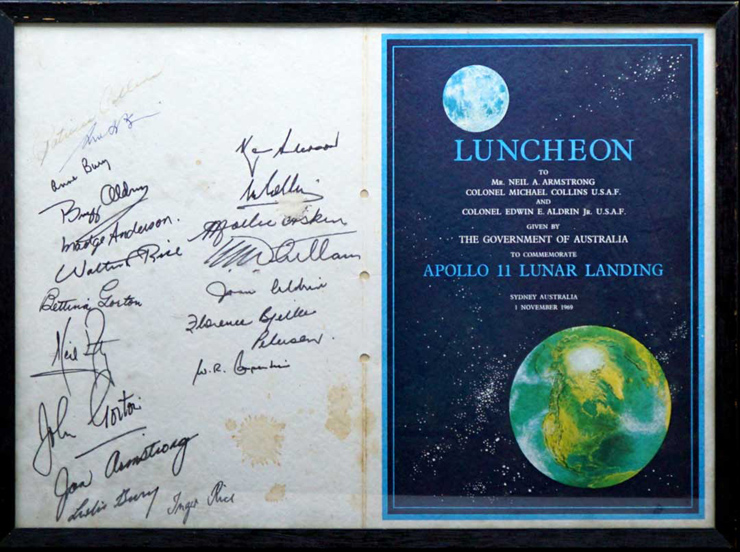 Patricia Collins
Anne Bury
Buzz Aldrin
Madge Anderson.
Walter Rice
Bettina Gorton
Neil
John Gorton
Jan Armstrong
Leslie Bury
Inger Rice
Collins
Mollie
Joan Aldrin
Florence Bjelke
Petersen
W.R.
LUNCHEON
TO
MR. NEIL A. ARMSTRONG
COLONEL MICHAEL COLLINS U.S.A.F.
AND
COLONEL EDWIN E. ALDRIN JR. U.S.A.F.
GIVEN BY
THE GOVERNMENT OF AUSTRALIA
TO COMMEMORATE
APOLLO 11 LUNAR LANDING
SYDNEY AUSTRALIA
1 NOVEMBER 1969